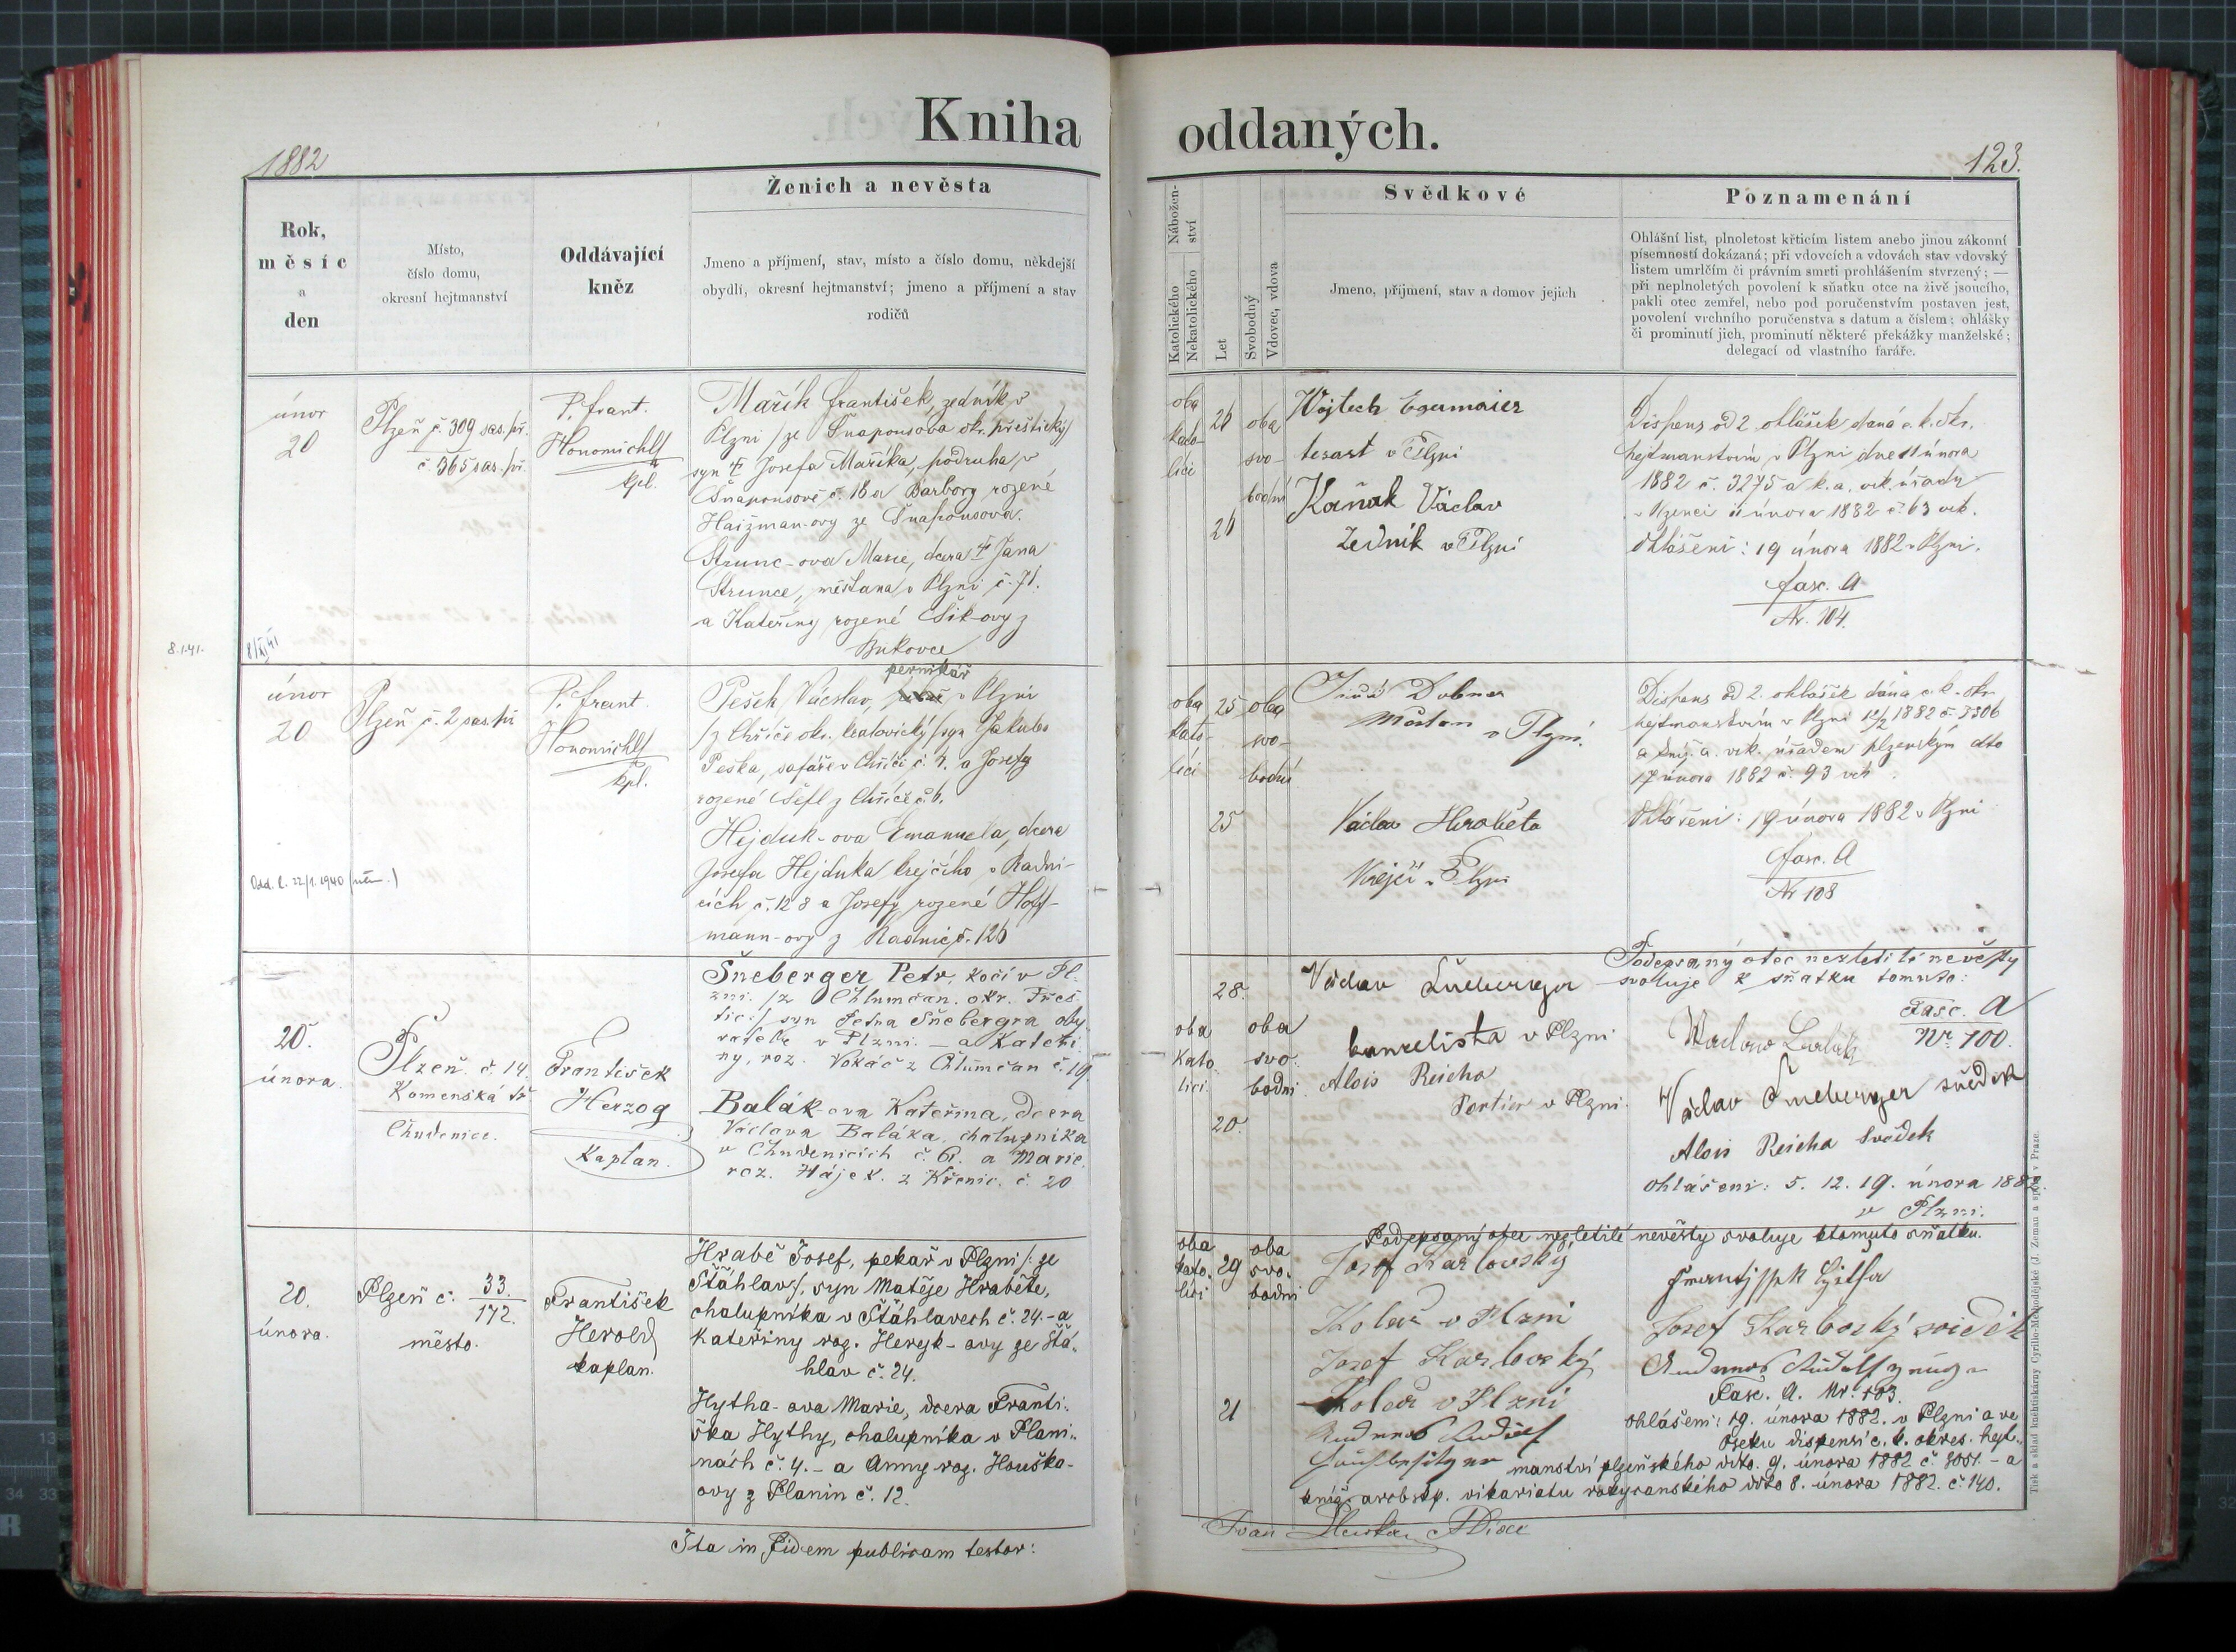 Kniha oddaných.
1882
123.
Rok,
měsíc
a
den
Místo,
číslo domu,
okresní hejtmanství
Oddávající
kněz
Ženich a nevěsta
Jmeno a příjmení, stav, místo a číslo domu, někdejší
obydlí, okresní hejtmanství; jmeno a příjmení a stav
rodičů
Nábožen-
ství
Katolického
Nekatolického
Let
Svobodný
Vdovec, vdova
Svědkové
Jmeno, přijmení, stav a domov jejich
Poznamenání
Ohlášní list, plnoletost křticím listem anebo jinou zákonní
písemností dokázaná; při vdovcích a vdovách stav vdovský
listem umrlčím či právním smrti prohlášením stvrzený; —
při neplnoletých povolení k sňatku otce na živě jsoucího,
pakli otec zemřel, nebo pod poručenstvím postaven jest,
povolení vrchního poručenstva s datum a číslem; ohlášky
či prominutí jich, prominutí některé překážky manželské;
delegací od vlastního faráře.
únor
20
Plzeň č. 309 sas. př.
č. 365 sas. př.
P. Frant.
Honomichl
kpl.
Mařík František, zedník v
Plzni /ze Šnaponsova okr. přeštický/
syn † Josefa Maříka, podruha v
Šnaponsově č. 18 a Barbory rozené
Haizman-ovy ze Šnaponsova.
Strunc-ova Marie, dcera † Jana
Strunce, měšťana v Plzni č. 71.
a Kateřiny rozené Šik-ovy z
Bukovce
oba
kato-
líci
26
oba
svo-
bodní
26
Vojtech Egermaier
tesař v Plzni
Kaňak Václav
Zedník v Plzni
Dispens od 2 ohlášek daná c. k. okr.
hejtmanstvím v Plzni dne 11 února
1882 č. 3275 a k. a. vik. úřadu
února 1882 č. 63 vik.
Ohlášeni: 19 února 1882 v Plzni.
fasc. A
Nr. 104.
8.1.41.
únor
20
Plzeň č. 2 sas. př
P. Frant.
Honomichl
kpl.
perníkář
Pešek Václav, v Plzni
/z Chříče okr. kralovický/ syn Jakuba
Peška, šafáře v Chříči č. 1. a Josefy
rozené Šefl z Chříče č. 6.
Hejduk-ova Emanuela, dcera
Josefa Hejduka krejčího v Radni-
cích č. 128 a Josefy rozené Hoff-
mann-ovy z Radnic č. 126
Odd. l. 22/1. 1940 (něm.)
oba
kato-
líci
25
oba
svo-
bodní
25
Dobner
Měšťan v Plzni.
Václav Hraběta
Krejčí v Plzni
Dispens od 2. ohlášek dána c. k. okr.
hejtmanstvím v Plzni 12/2 1882 č. 3306
a kníž. a. vik. úřadem plzenským dto
17 února 1882 č. 93 vik
Ohlášeni: 19 února 1882 v Plzni
fasc. A
Nr 108
20.
února.
Plzeň. č. 14.
Komenská tř
Chudenice.
František
Herzog
Kaplan.
Šneberger Petr, kočí v Pl-
zni. /z Chlumčan. okr. Přeš-
tic:/ syn Petra Šnebergra oby-
vatele v Plzni. — a Kateři-
ny, roz. Vokáč z Chlumčan č. 19
Balák-ova Kateřina, dcera
Václava Baláka, chalupníka
v Chudenicích č. 61. a Marie.
roz. Hájek. z Křenic. č. 20
28.
oba
kato.
líci.
oba
svo.
bodni
20.
Václav Šneberger
kancelista v Plzni
Alois Reicha
Portier v Plzni.
Podepsaný otec nezletilé nevěsty
svoluje k sňatku tomuto:
Fasc. A
Nr. 100.
Václav Šneberger svědek
Alois Reicha Svědek
ohlášeni: 5. 12. 19. února 1882.
v Plzni.
20.
února.
Plzeň č. 33.
172.
město.
František
Herold
kaplan.
Hrabě Josef, pekař v Plzni /: ze
Štáhlav:/, syn Matěje Hraběte,
chalupníka v Štáhlavech č. 24. - a
Kateřiny roz. Herejk-ovy ze Štá-
hlav č. 24.
Hytha-ova Marie, dcera Franti-
ška Hythy, chalupníka v Plani-
nách č. 4. - a Anny roz. Houška-
ovy z Planin č. 12.
oba
kato.
líci
29
oba
svo.
bodni
21
Podepsaný otec nezletilé nevěsty svoluje ktomuto sňatku.
Josef Karlovský
Kolář v Plzni
Josef Karlovský
Kolář v Plzni
Josef Karlovský svědek
Fasc. A. Nr. 103.
Ohlášeni: 19. února 1882. v Plzni a ve
Oseku dispensí c. k. okres. hejt-
manství plzeňského dto. 9. února 1882 č. 3051. - a
kníž. arcibskp. vikariatu rokycanského dto 8. února 1882. č. 140.
Ita in fidem publicam testor:
Tisk a sklad knihtiskárny Cyrillo-Methodějské (J. Zeman a spol.) v Praze.